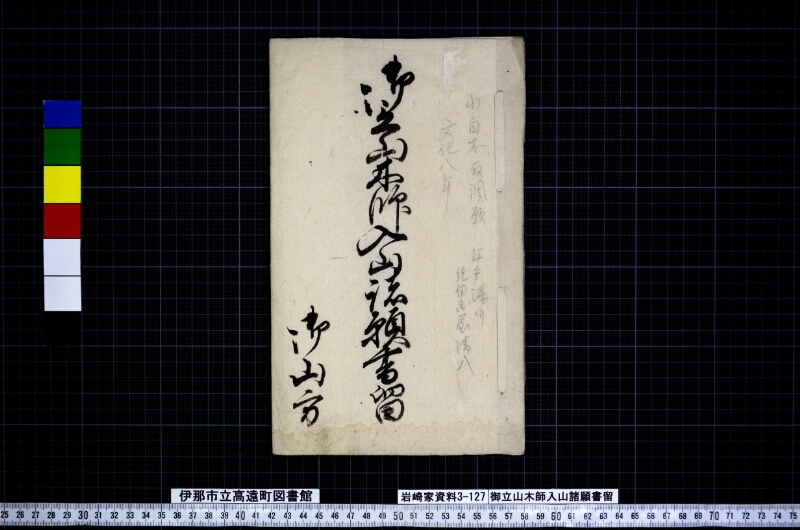 文化八年
御立山木師入山諸願書留
御山方
伊那市立高遠町図書館
岩崎家資料3-127 御立山木師入山諸願書留
25 26 27 28 29 30 31 32 33 34 35 36 37 38 39 40 41 42 43 44 45 46 47 48 49 50 51 52 53 54 55 56 57 58 59 60 61 62 63 64 65 66 67 68 69 70 71 72 73 74 75